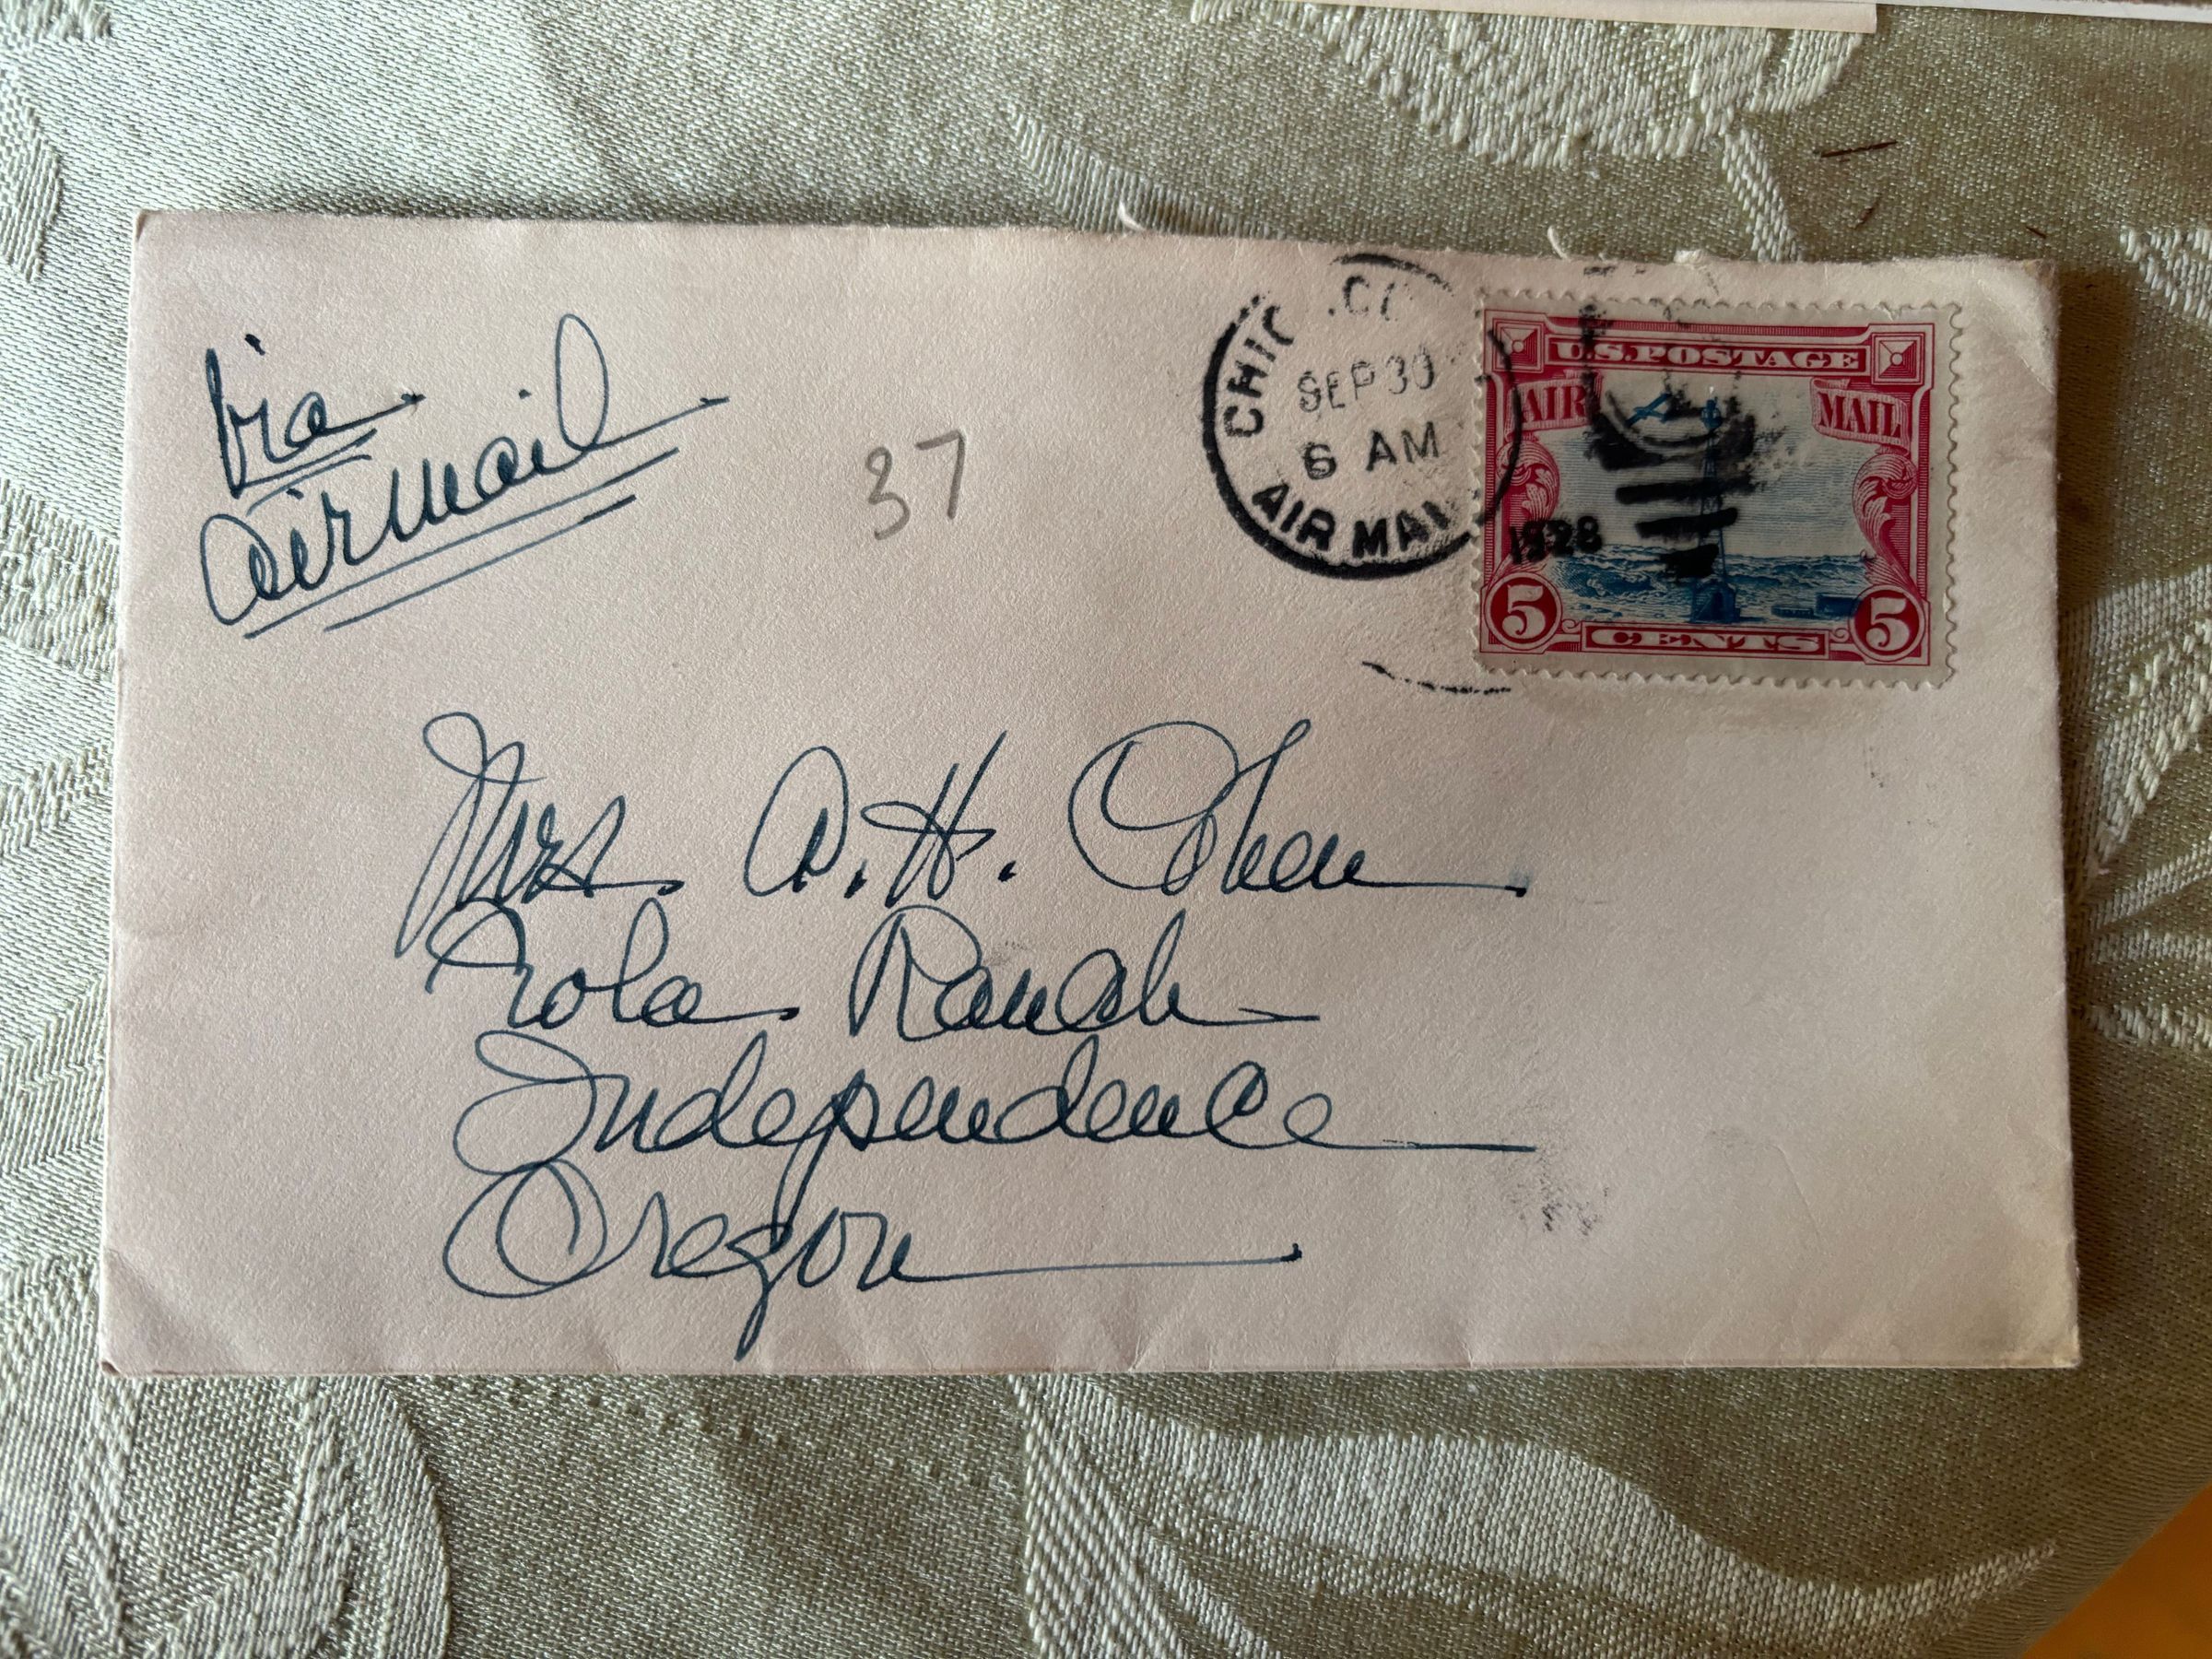 Via
Airmail
37
CHICAGO
SEP 30
6 AM
AIR MAIL
1928
U.S. POSTAGE
AIR MAIL
5 CENTS 5
Mrs. A. H. Cohen
Ranch
Independence
Oregon